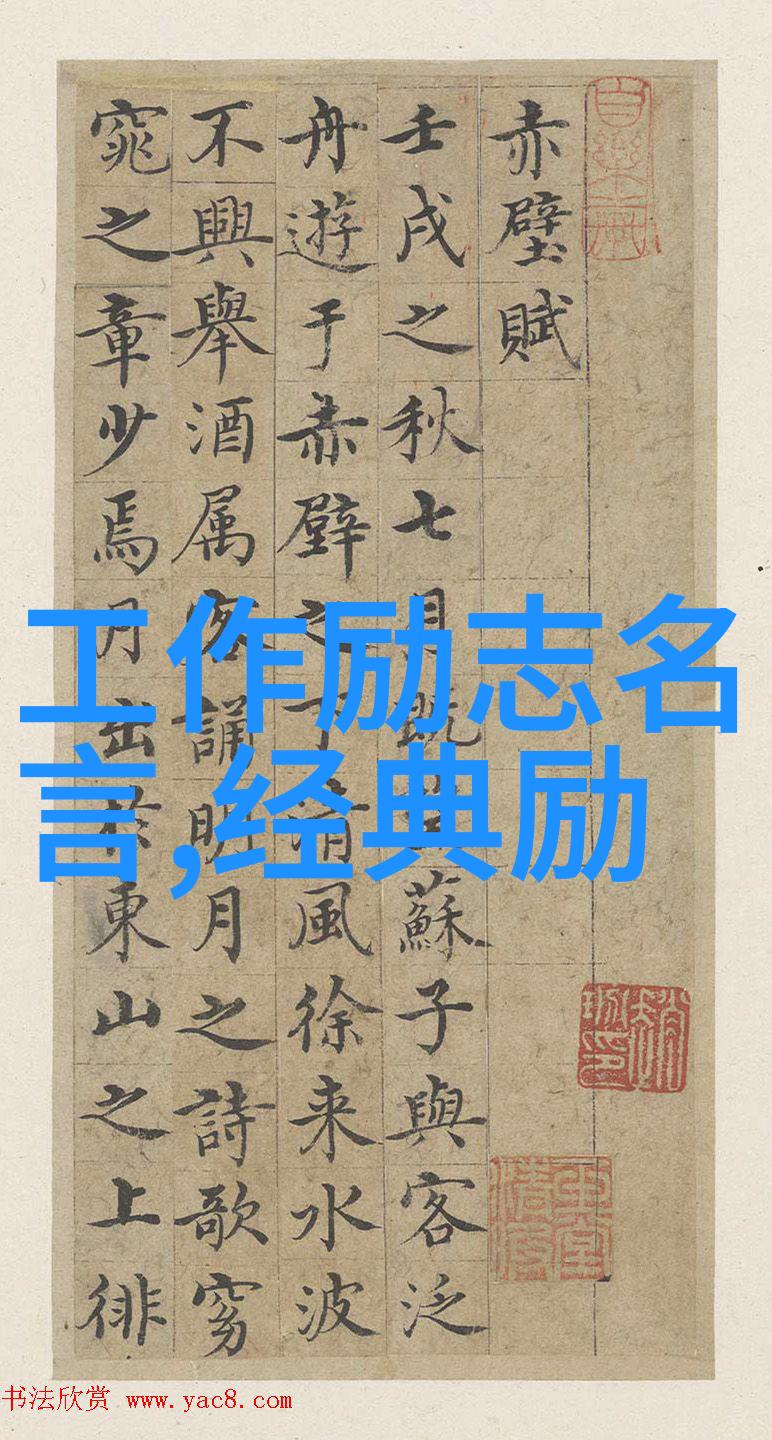 赤壁賦
壬戌之秋七月既蘇子與客泛
舟遊于赤壁之下清風徐来水波
不興舉酒属客誦明月之詩歌窈
窕之章少焉月出於東山之上徘
工作励志名
言,经典励
书法欣赏 www.yac8.com